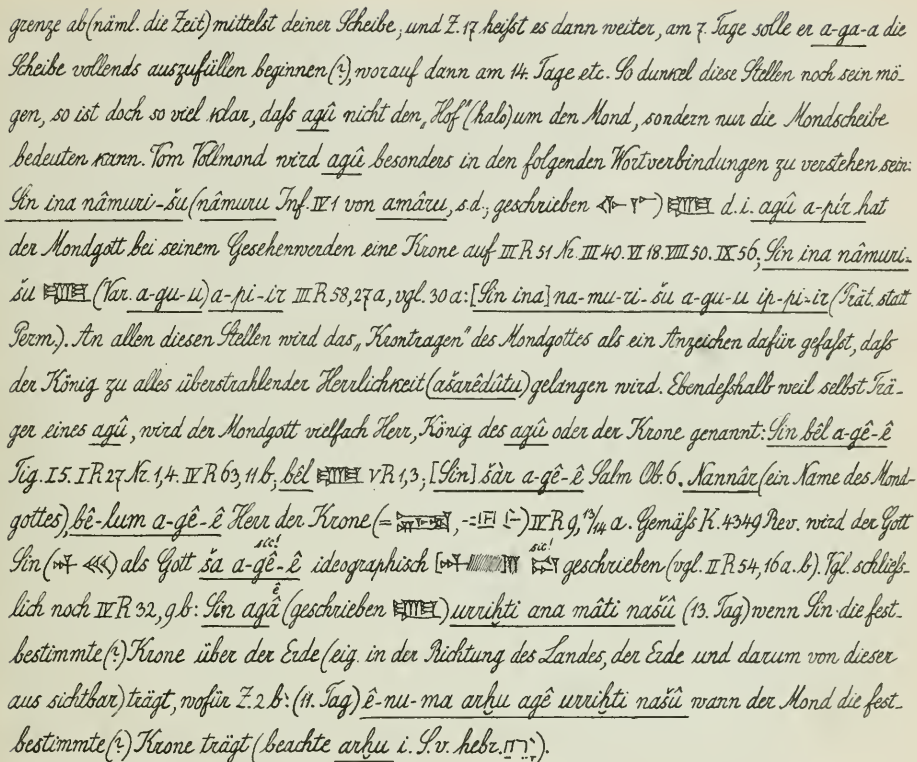 grenze ab (näml. die Zeit) mittelst deiner Scheibe, und Z. 17 heißt es dann weiter, am 7. Tage solle er a-ga-a die
Scheibe vollends auszufüllen beginnen (?), worauf dann am 14. Tage etc. So dunkel diese Stellen noch sein mö-
gen, so ist doch so viel klar, daſs agû nicht den „Hof“ (halo) um den Mond, sondern nur die Mondscheibe
bedeuten kann. Vom Vollmond wird agû besonders in den folgenden Wortverbindungen zu verstehen sein:
Sin ina nâmuri-šu (nâmuru Inf. IV 1 von amâru, s.d.; geschrieben 𒅆 𒇲) 𒂆 d. i. agû a-pír hat
der Mondgott bei seinem Gesehenwerden eine Krone auf III R 51 Nr. III 40. VI 18. VIII 50. IX 56; Sin ina nâmuri-
šu (Var. a-gu-u) a-pi-ir III R 58, 27a, vgl. 30a: [Sin ina] na-mu-ri-šu a-gu-u ip-pi-ir (Prät. statt
Perm.). An allen diesen Stellen wird das „Krontragen“ des Mondgottes als ein Anzeichen dafür gefaſst, daſs
der König zu alles überstrahlender Herrlichkeit (ašarêdûtu) gelangen wird. Ebendeſshalb weil selbst Trä-
ger eines agû, wird der Mondgott vielfach Herr, König des agû oder der Krone genannt: Sin bêl a-gê-ê
Tig. I 5. I R 27 Nr. 1, 4. IV R 63, 11 b, bêl V R 1, 3, [Sin] šàr a-gê-ê Salm Ob. 6. Nannâr (ein Name des Mond-
gottes), bê-lum a-gê-ê Herr der Krone (= ) IV R 9, 13/14 a. Gemäſs K. 4349 Rev. wird der Gott
Sin (𒀭 𒌍) als Gott ša a-gê-ê sic! ideographisch [𒀭 sic! geschrieben (vgl. II R 54, 16 a. b). Vgl. schlieſs-
lich noch IV R 32, 9 b: Sin agâ ê (geschrieben ) urriḫti ana mâti našû (13. Tag) wenn Sin die fest-
bestimmte (?) Krone über der Erde (eig. in der Richtung des Landes, der Erde und darum von dieser
aus sichtbar) trägt, wofür Z. 2 b: (11. Tag) ê-nu-ma arḫu agê urriḫti našû wann der Mond die fest-
bestimmte (?) Krone trägt (beachte arḫu i. S. v. hebr. יָרֵחַ).